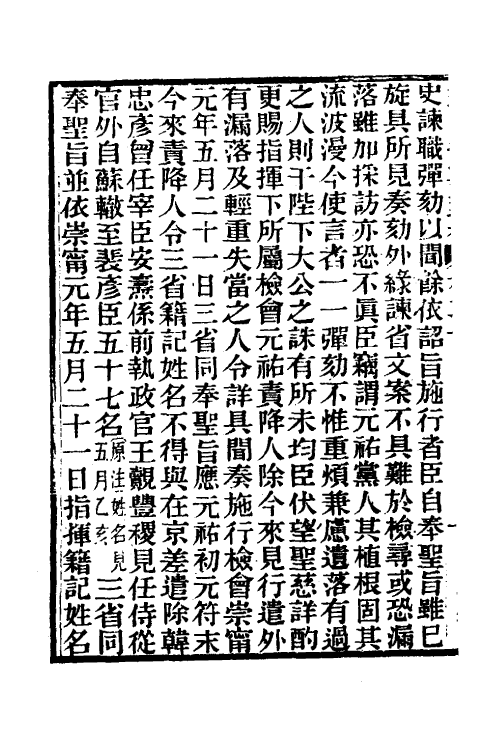 史諫職彈劾以聞餘依詔旨施行者臣自奉聖旨雖已
旋具所見奏劾外緣諫省文案不具難於檢尋或恐漏
落雖加採訪亦恐不眞臣竊謂元祐黨人其植根固其
流波漫今使言者一一彈劾不惟重煩兼慮遺落有過
之人則干陛下大公之誅有所未均臣伏望聖慈詳酌
更賜指揮下所屬檢會元祐責降人除今來見行遣外
有漏落及輕重失當之人令詳具聞奏施行檢會崇甯
元年五月二十一日三省同奉聖旨應元祐初元符末
今來責降人令三省籍記姓名不得與在京差遣除韓
忠彥曾任宰臣安燾係前執政官王覿豐稷見任侍從
官外自蘇轍至裴彥臣五十七名原注姓名見五月乙亥三省同
奉聖旨並依崇甯元年五月二十一日指揮籍記姓名